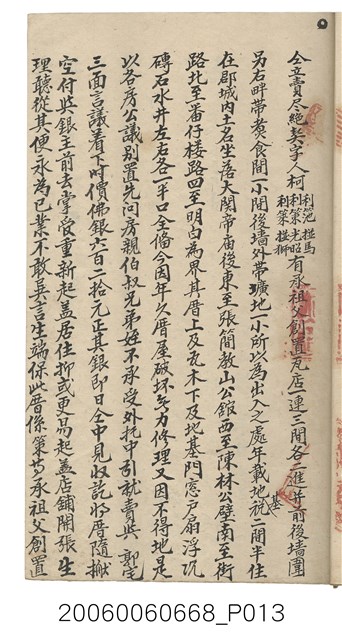 仝立賣尽絕契字人柯利池 利策 利策 挺馬 光昭 挺獅有承祖父創置瓦店一連三間各二進并前後墻圍
另右畔帶煑食間一小間後墻外帶壙地一小所以為出入之處年載地基稅二間半住
在郡城内土名坐落大関帝庙後東至張簡教山公舘西至陳林公壁南至街
路北至番仔楼路四至明白為界其厝上及瓦木下及地基門窓户扇浮沉
磚石水井左右各一半口全俻今因年久厝屋破坏乏力修理又因不得地是
以各房公議别置先问房親伯叔兄弟姪不承受外托中引就賣與郭宅
三面言議着下时價佛銀六百二拾元正其銀即日仝中見收訖将厝隨搬
空付與銀主前去掌管重新起盖居住抑或更易起盖店鋪開張生
理聽從其便永為己業不敢異言生端保此厝係策等承祖父創置
20060060668_P013